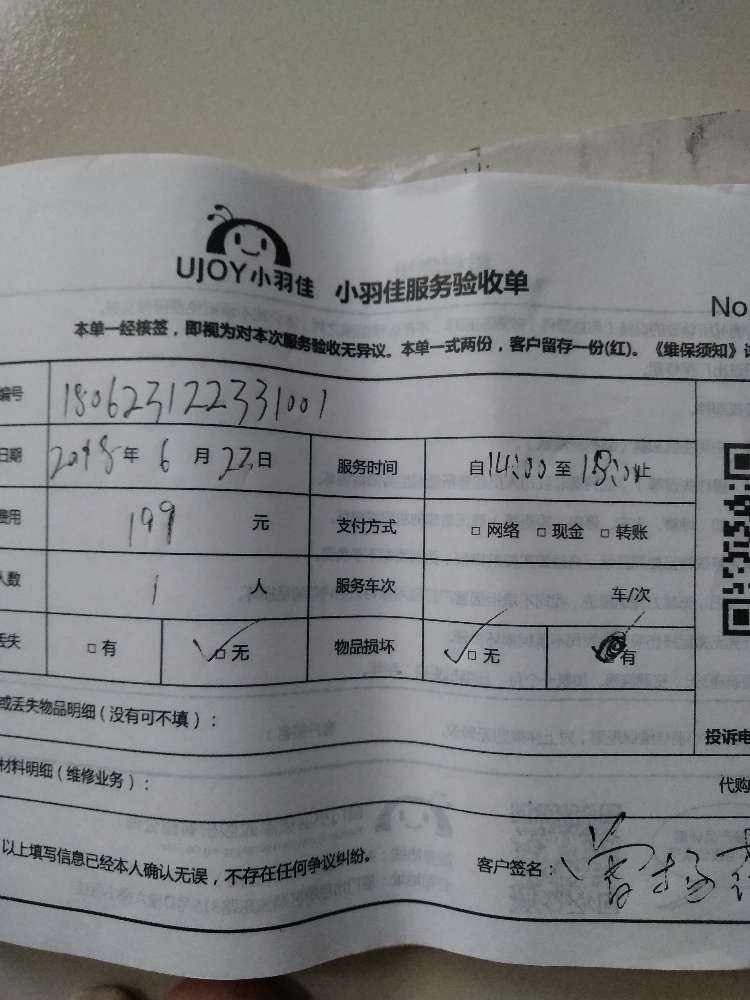 UJOY小羽佳 小羽佳服务验收单
No
本单一经核签，即视为对本次服务验收无异议。本单一式两份，客户留存一份(红)。《维保须知》
编号 180623122331001
日期 2018年 6 月 23日 服务时间 自14:00至18:0止
费用 199 元 支付方式 □ 网络 □ 现金 □ 转账
人数 1 人 服务车次 车/次
丢失 □ 有 □ 无 物品损坏 □ 无 有
或丢失物品明细（没有可不填）：
投诉电
材料明细（维修业务）：
代购
以上填写信息已经本人确认无误，不存在任何争议纠纷。 客户签名：